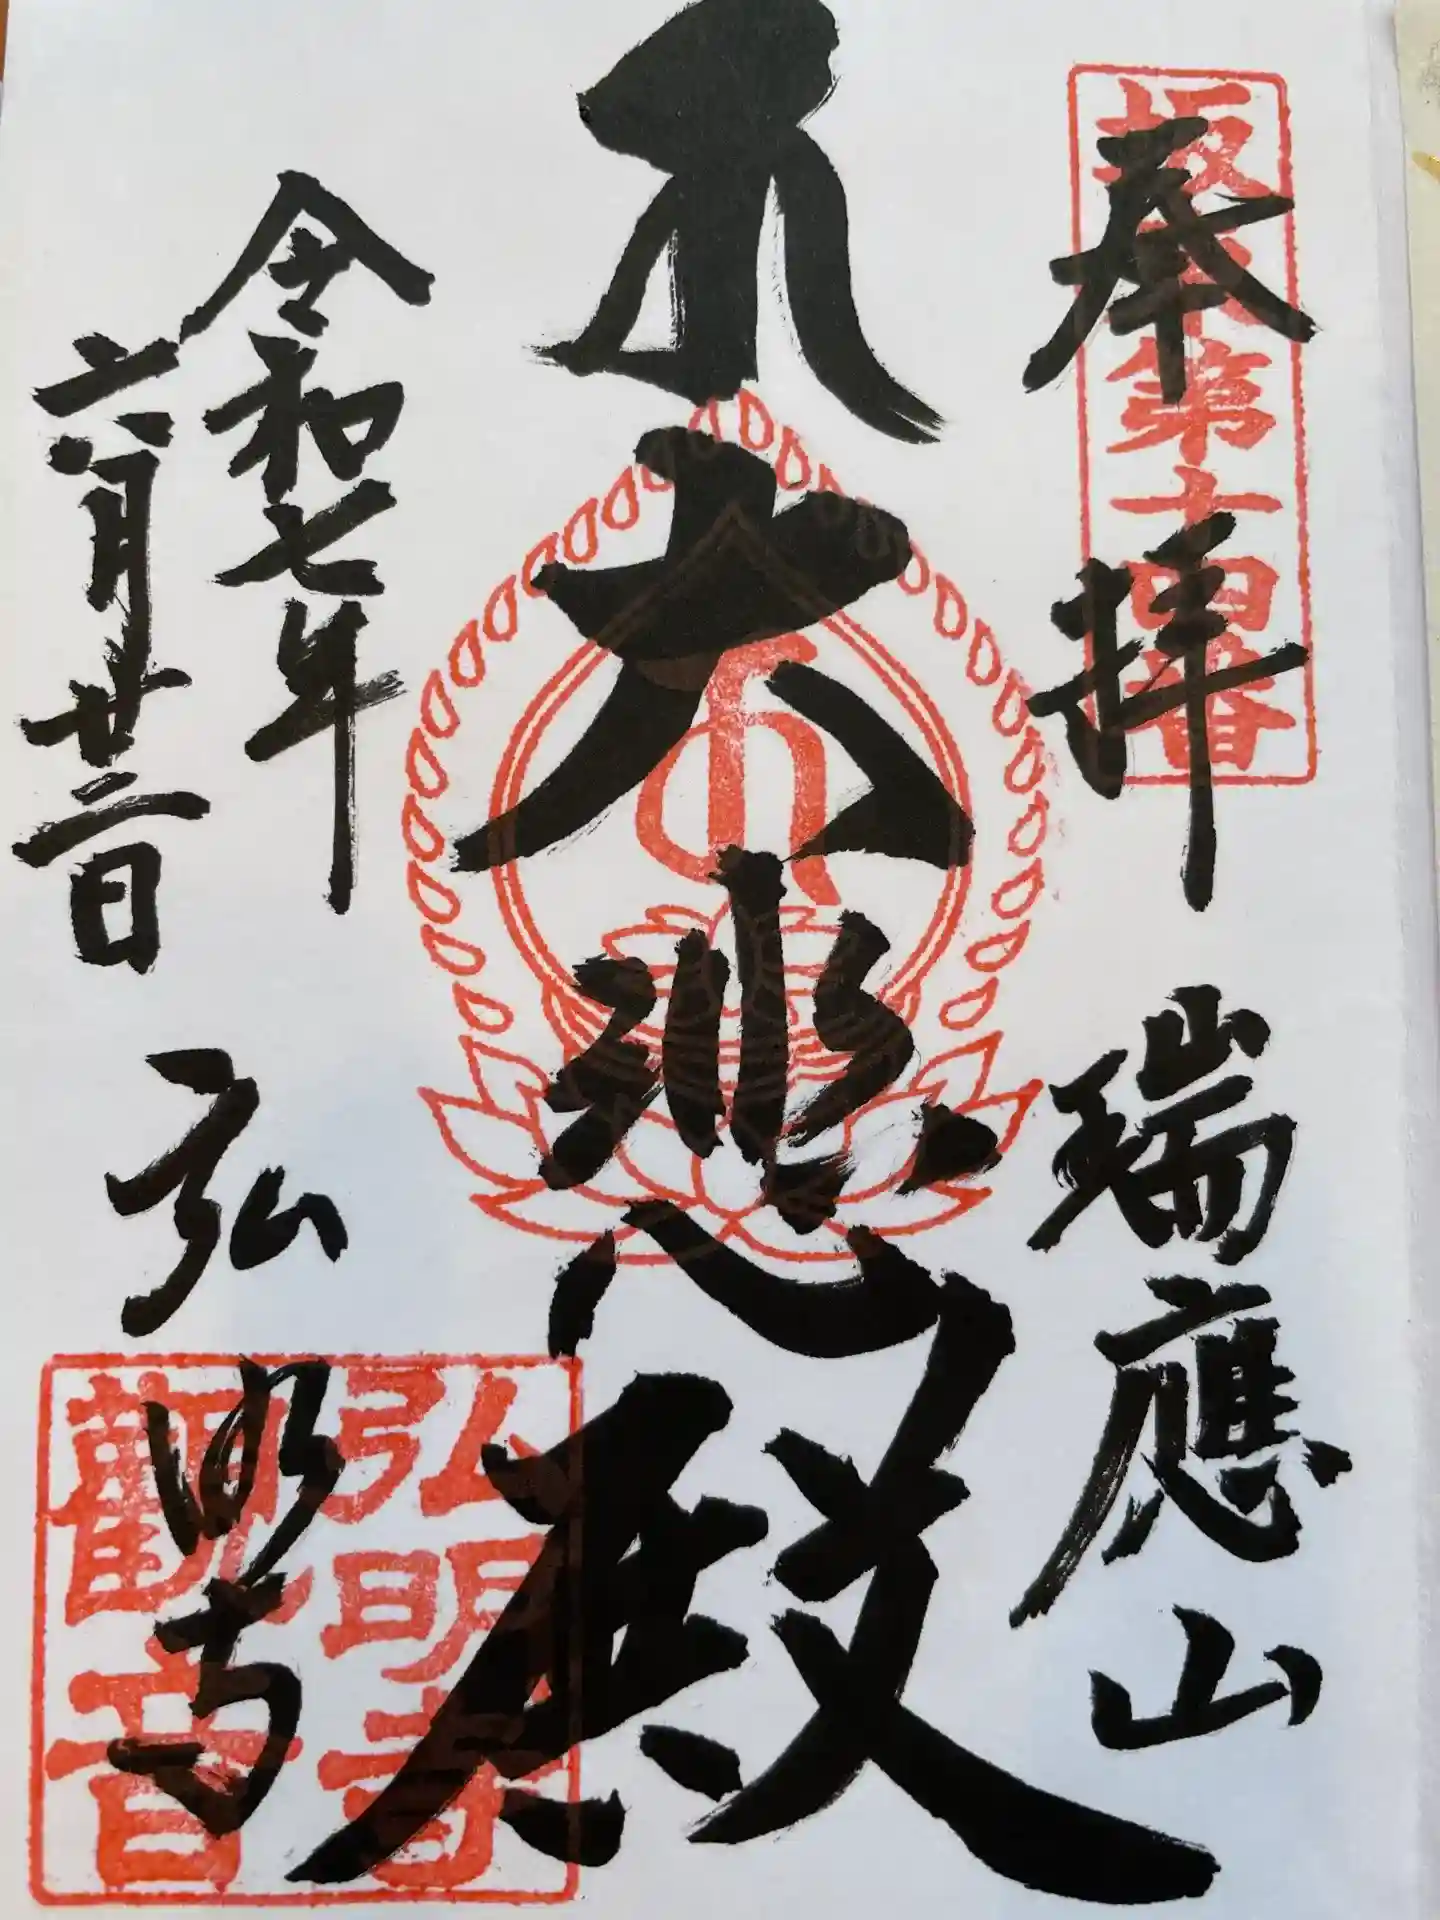 坂東第十四番
奉拝 瑞應山
大悲殿
令和七年
六月廿二日
弘明寺
弘明寺
觀音